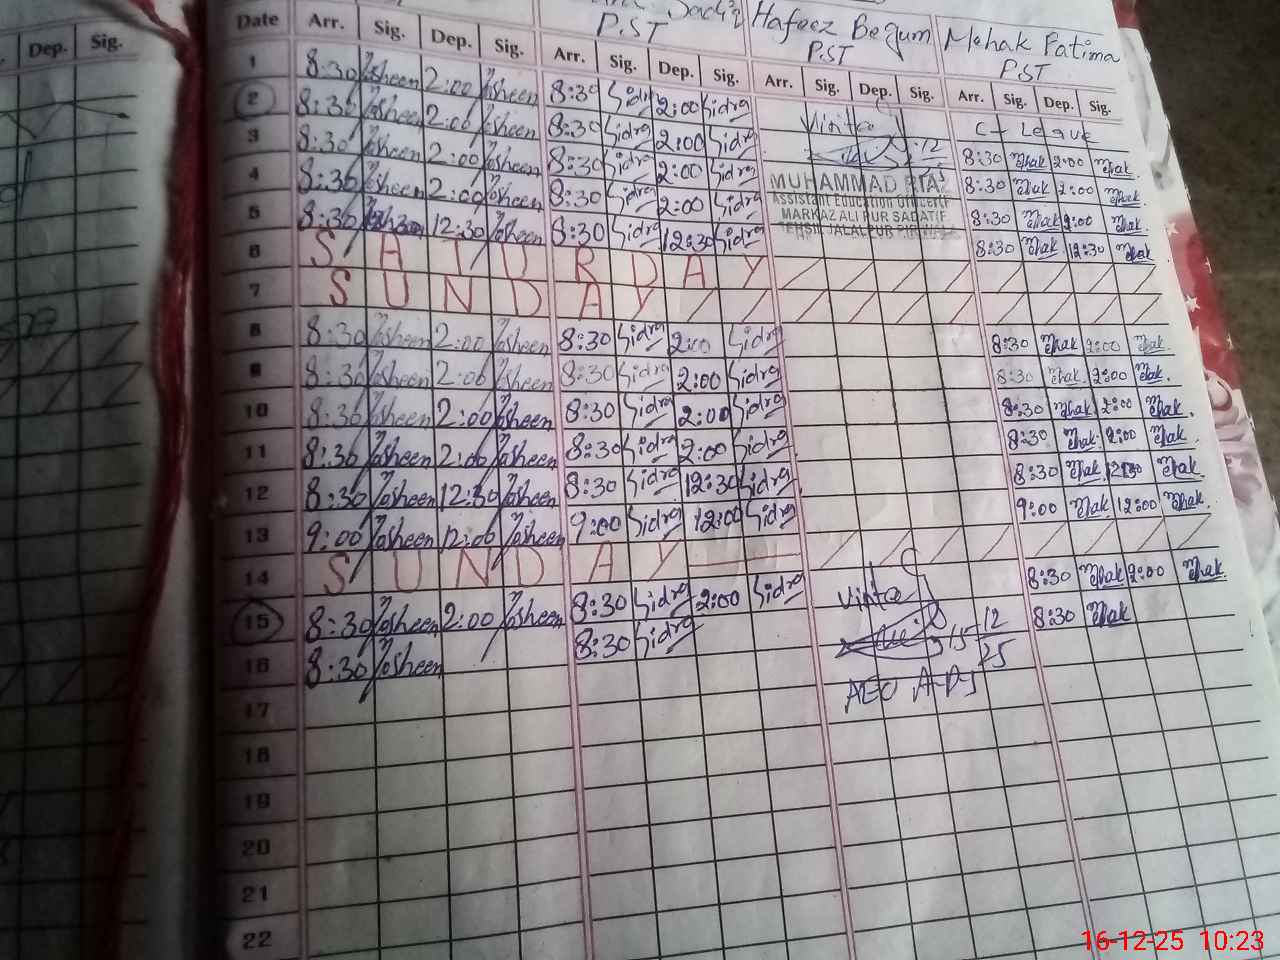 Dep. Sig.
Hafeez Begum Mehak Fatima
P.ST P.ST P.ST
Date Arr. Sig. Dep. Sig. Arr. Sig. Dep. Sig. Arr. Sig. Dep. Sig. Arr. Sig. Dep. Sig.
1 8:30 Nosheen 2:00 Nosheen 8:30 Sidra 2:00 Sidra
2 8:30 Nosheen 2:00 Nosheen 8:30 Sidra 2:00 Sidra 8:30 Mehak 2:00 Mehak
3 8:30 Nosheen 2:00 Nosheen 8:30 Sidra 2:00 Sidra 8:30 Mehak 2:00 Mehak
4 8:30 Nosheen 2:00 Nosheen 8:30 Sidra 2:00 Sidra 8:30 Mehak 2:00 Mehak
5 8:30 12:30 Nosheen 8:30 Sidra 12:30 Sidra 8:30 Mehak 12:30 Mehak
MUHAMMAD RIAZ
Assistant Education Officer
MARKAZ ALI PUR SADAT
TEHSIL JALALPUR
6 SATURDAY
7 SUNDAY
8 8:30 Nosheen 2:00 Nosheen 8:30 Sidra 2:00 Sidra 8:30 Mehak 2:00 Mehak
9 8:30 Nosheen 2:00 Nosheen 8:30 Sidra 2:00 Sidra 8:30 Mehak 2:00 Mehak
10 8:30 Nosheen 2:00 Nosheen 8:30 Sidra 2:00 Sidra 8:30 Mehak 2:00 Mehak
11 8:30 Nosheen 2:00 Nosheen 8:30 Sidra 2:00 Sidra 8:30 Mehak 2:00 Mehak
12 8:30 Nosheen 12:30 Nosheen 8:30 Sidra 12:30 Sidra 8:30 Mehak 12:30 Mehak
13 9:00 Nosheen 12:00 Nosheen 9:00 Sidra 12:00 Sidra 9:00 Mehak 12:00 Mehak
14 SUNDAY
15 8:30 Nosheen 2:00 Nosheen 8:30 Sidra 2:00 Sidra 8:30 Mehak 2:00 Mehak
16 8:30 Nosheen 8:30 Sidra 15-12/25 8:30 Mehak
17 AEO
18
19
20
21
22
16-12-25 10:23